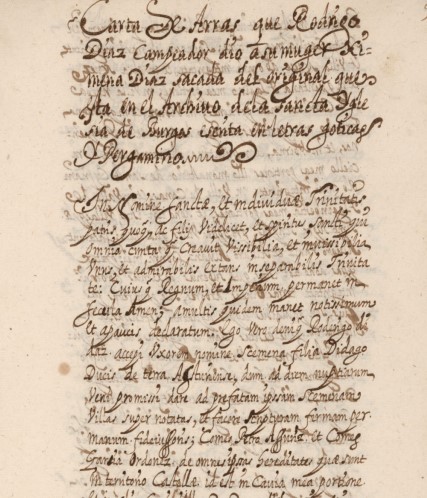 Carta De Arras que Rodrigo
Diaz Campeador dio a su muger Xi-
mena Diaz sacada del original que
esta en el Archivo de la Sancta Ygle
sia de Burgos escrita en letras goticas
Y Pergamino
In Nomine Sanctæ, et individuæ Trinitatis
patris quoq, ac filij Videlicet, et spiritus sancti qui
omnia cunta q Creavit Vissibilia, et invissibilia
Vnus, et admirabilis extans inseparabilis Trinita
te: Cuius q Regnum, et Imperium permanet in
secula Amen; amultis quidem manet notissimum
et apaucis declaratum. Ego Vero deniq Rodrigo di
az accepi Vxorem nomine Scemena filia Didago
Ducis de terra Asturiense, dum ad diem nuptiarum
Veni promissi dare ad prefatam ipsam Scemenam
Villas super notatas, et facere Scripturam fermam per
manum fideiussons; Comes Petro Assuriz, et Comes
Garcia Ordoniz, de omnes ipsas hereditates quæ sunt
in territorio Castellæ id est in Cauia mea portione